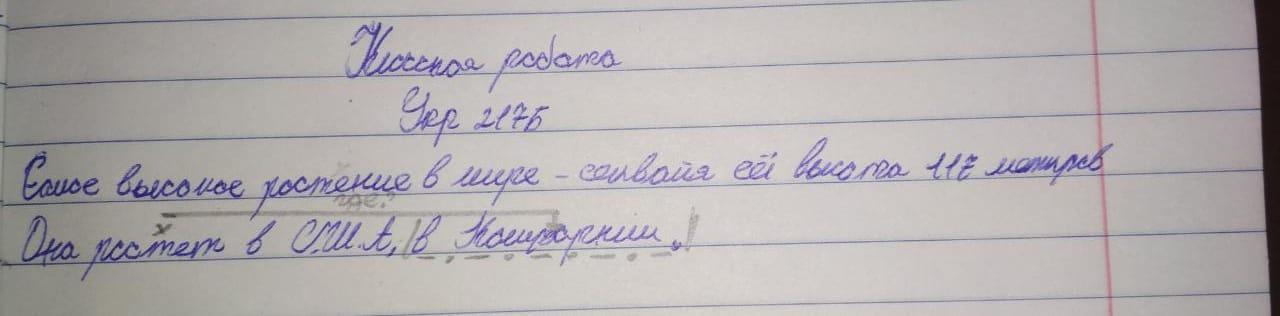 Классная работа
Укр 217Б
Самое высокое растение в мире - секвайя её высота 117 метров
где?
х
Она растет в США, в Калифорнии.